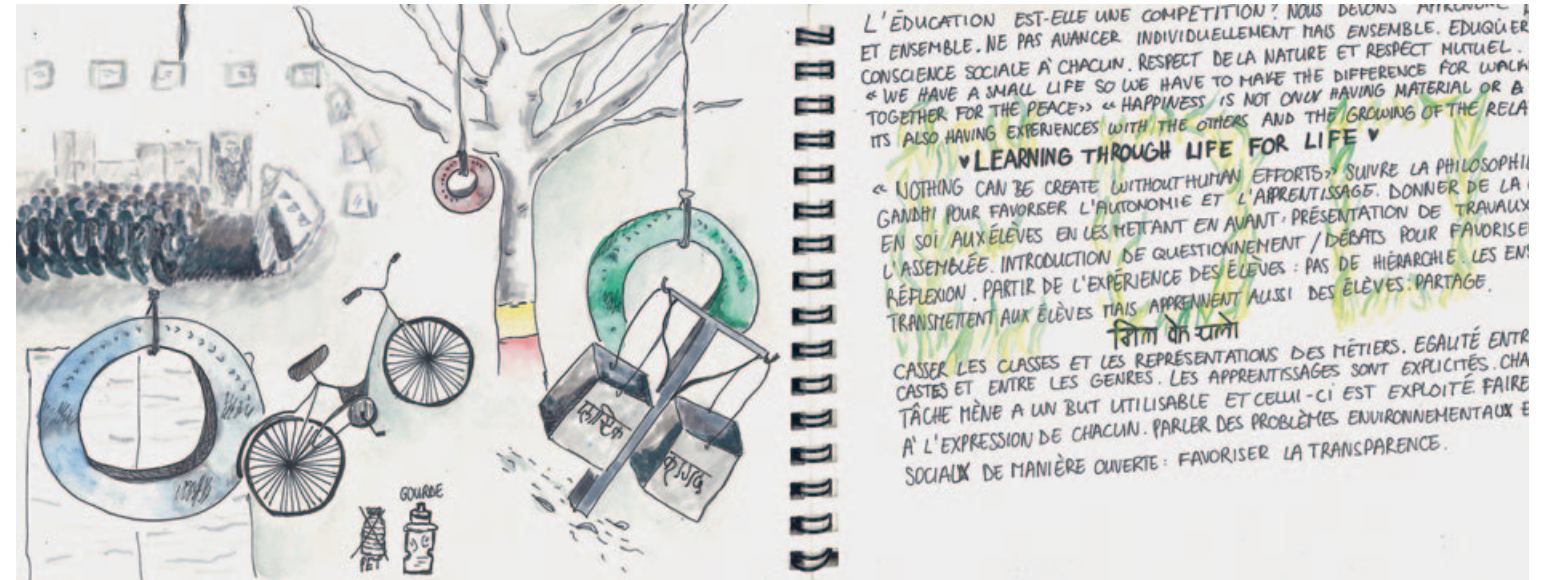 GOURDE
PET
प्लास्टिक
कागज
L'ÉDUCATION EST-ELLE UNE COMPÉTITION? NOUS DEVONS APPRENDRE
ET ENSEMBLE. NE PAS AVANCER INDIVIDUELLEMENT MAIS ENSEMBLE. EDUQUER
CONSCIENCE SOCIALE À CHACUN. RESPECT DE LA NATURE ET RESPECT MUTUEL.
« WE HAVE A SMALL LIFE SO WE HAVE TO MAKE THE DIFFERENCE FOR WALK
TOGETHER FOR THE PEACE» « HAPPINESS IS NOT ONLY HAVING MATERIAL OR A
ITS ALSO HAVING EXPERIENCES WITH THE OTHERS AND THE GROWING OF THE RELA
♥ LEARNING THROUGH LIFE FOR LIFE ♥
« NOTHING CAN BE CREATE WITHOUT HUMAN EFFORTS» SUIVRE LA PHILOSOPHIE
GANDHI POUR FAVORISER L'AUTONOMIE ET L'APPRENTISSAGE. DONNER DE LA
EN SOI AUX ÉLÈVES EN LES METTANT EN AVANT: PRÉSENTATION DE TRAVAUX
L'ASSEMBLÉE. INTRODUCTION DE QUESTIONNEMENT / DÉBATS POUR FAVORISE
RÉFLEXION. PARTIR DE L'EXPÉRIENCE DES ÉLÈVES : PAS DE HIÉRARCHIE. LES ENS
TRANSMETTENT AUX ÉLÈVES MAIS APPRENNENT AUSSI DES ÉLÈVES: PARTAGE.
चलो
CASSER LES CLASSES ET LES REPRÉSENTATIONS DES MÉTIERS. EGALITÉ ENTR
CASTES ET ENTRE LES GENRES. LES APPRENTISSAGES SONT EXPLICITÉS. CHA
TÂCHE MÈNE A UN BUT UTILISABLE ET CELUI-CI EST EXPLOITÉ. FAIRE
À L'EXPRESSION DE CHACUN. PARLER DES PROBLÈMES ENVIRONNEMENTAUX E
SOCIAUX DE MANIÈRE OUVERTE: FAVORISER LA TRANSPARENCE.